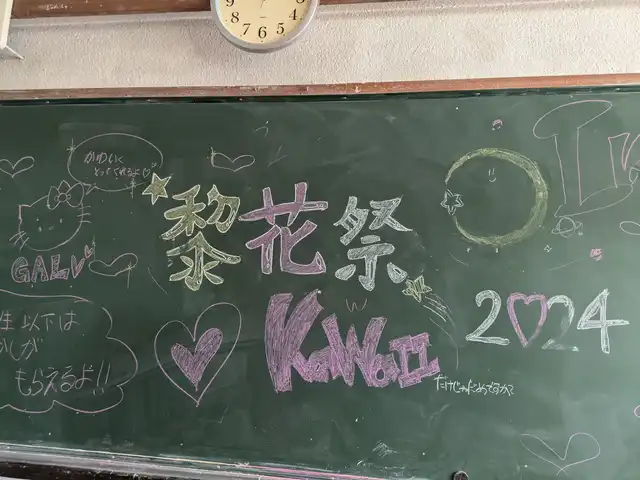 9 3
8 4
7 6 5
かわいく
とってくれるよ♡
GALV
黎花祭
KaWaII
だけじゃだめですか?
2♡24
生以下は
がしが
もらえるよ!!